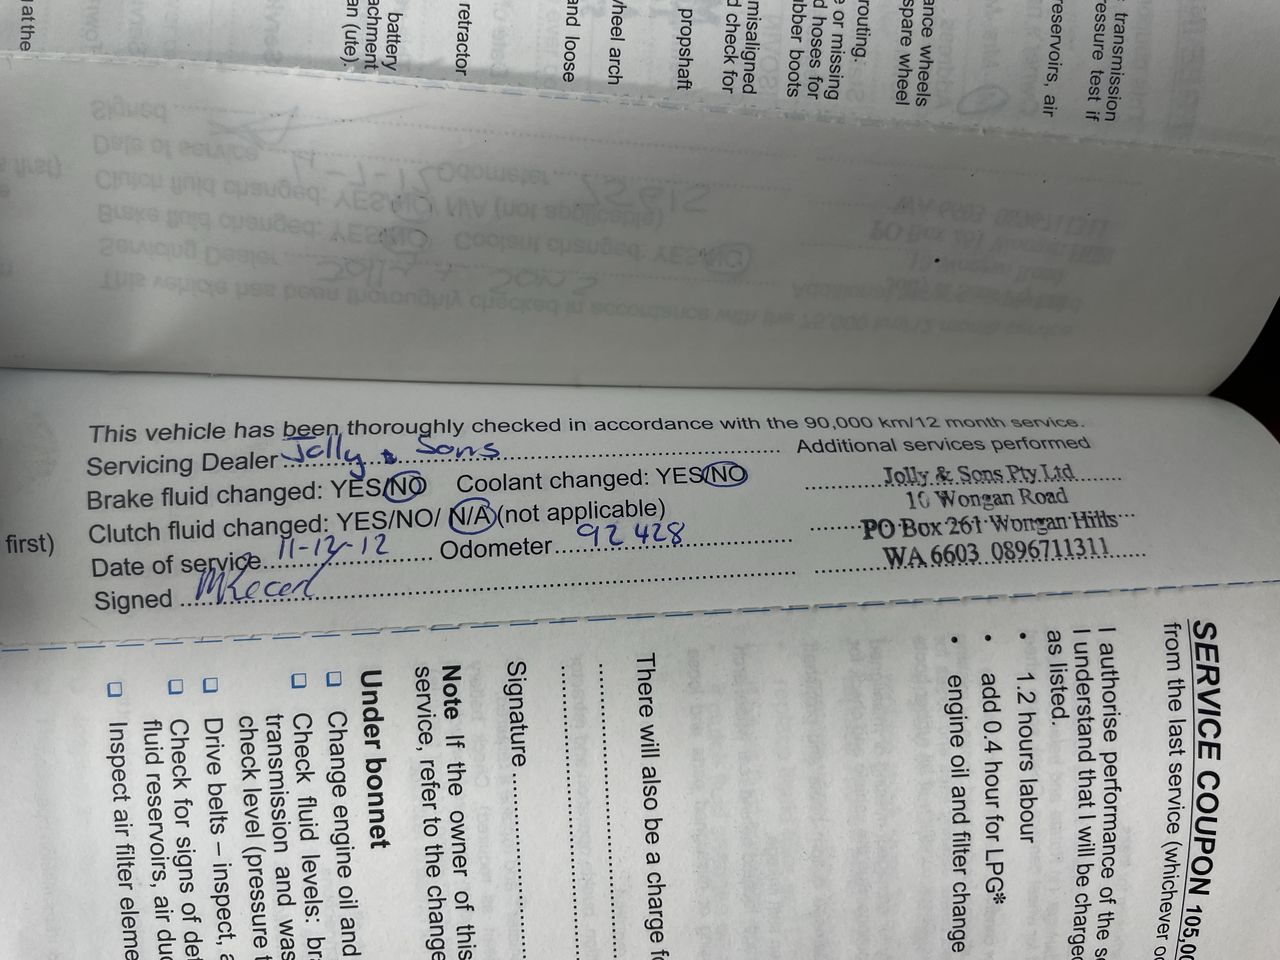 at the
battery
achment
an (ute).
retractor
and loose
wheel arch
propshaft
misaligned
d check for
routing.
e or missing
d hoses for
bber boots
ance wheels
spare wheel
eservoirs, air
transmission
ressure test if
This vehicle has been thoroughly checked in accordance with the 90,000 km/12 month service.
Servicing Dealer Jolly & Sons
Brake fluid changed: YES/NO Coolant changed: YES/NO
Clutch fluid changed: YES/NO/ N/A (not applicable)
Date of service 11-12-12 Odometer 92428
Signed
Additional services performed
Jolly & Sons Pty Ltd
10 Wongan Road
PO Box 261 Wongan Hills
WA 6603 0896711311
first)
SERVICE COUPON 105,00
from the last service (whichever oc
I authorise performance of the se
I understand that I will be charged
as listed.
• 1.2 hours labour
• add 0.4 hour for LPG*
• engine oil and filter change
There will also be a charge fo
Signature
Note If the owner of this
service, refer to the change
Under bonnet
❑ Change engine oil and
❑ Check fluid levels: bra
transmission and was
check level (pressure t
❑ Drive belts – inspect, a
❑ Check for signs of det
fluid reservoirs, air duc
❑ Inspect air filter eleme